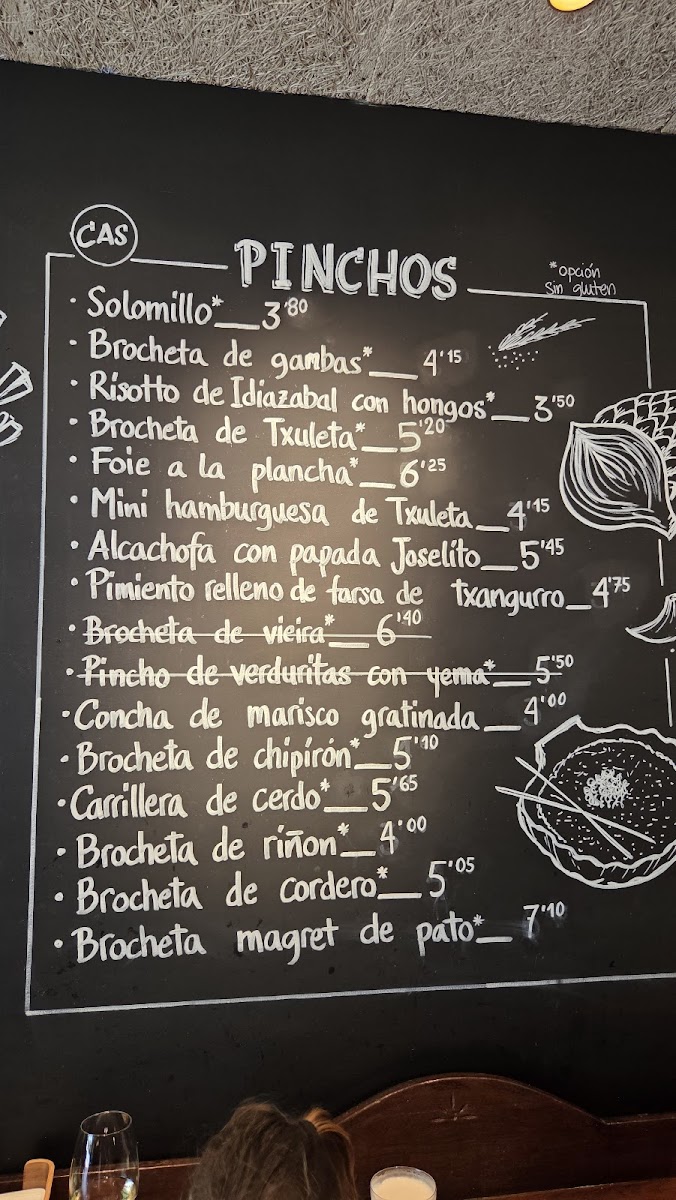 CAS
PINCHOS
*opción
sin gluten
· Solomillo*__3'80
· Brocheta de gambas*__4'15
· Risotto de Idiazabal con hongos*__3'50
· Brocheta de Txuleta*__5'20
· Foie a la plancha*__6'25
· Mini hamburguesa de Txuleta__4'15
· Alcachofa con papada Joselito__5'45
· Pimiento relleno de farsa de txangurro_4'75
· Brocheta de vieira*__6'40
· Pincho de verduritas con yema*__5'50
· Concha de marisco gratinada__4'00
· Brocheta de chipirón*__5'10
· Carrillera de cerdo*__5'65
· Brocheta de riñon*__4'00
· Brocheta de cordero*__5'05
· Brocheta magret de pato*__7'10